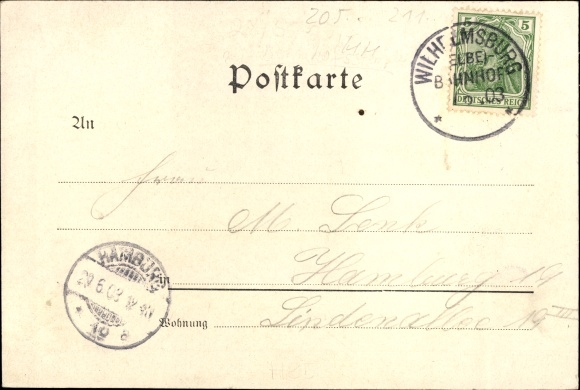 205. 211.
5 5
DEUTSCHES REICH
WILHELMSBURG
(ELBE)
BAHNHOF
03
Postkarte
An
Herrn
M. Lenk
Hamburg 19
in
Lindenallee 19 III
Wohnung
HAMBURG
29.6.03
19 a